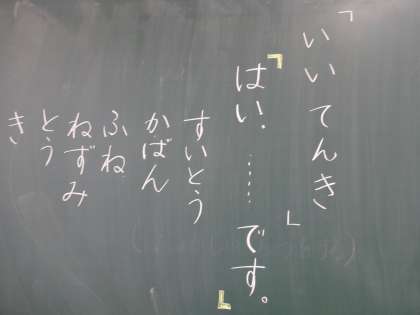 「いいてんき」
『はい、……です。』
すいとう
かばん
ふね
ねずみ
とう
き